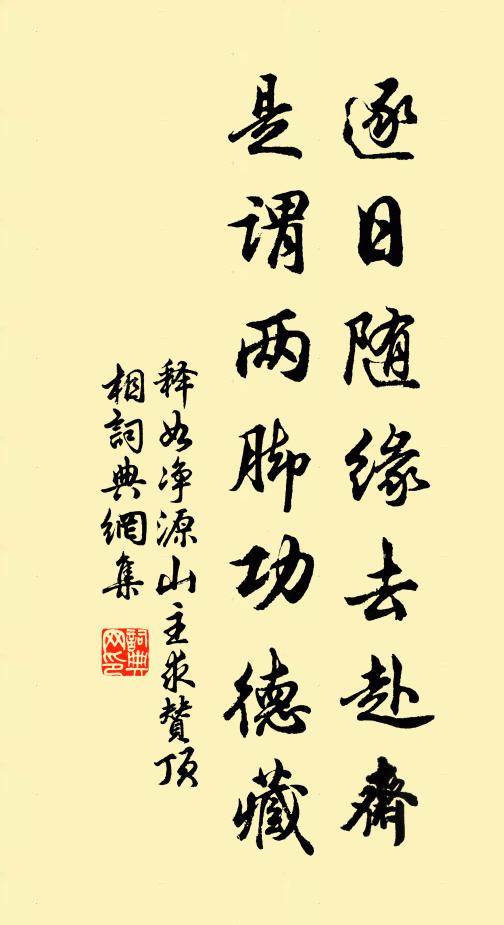 逐日随缘去赴齋
是谓两脚功德藏
释如净源山主求赞顶
相詞典網集
詞典网印